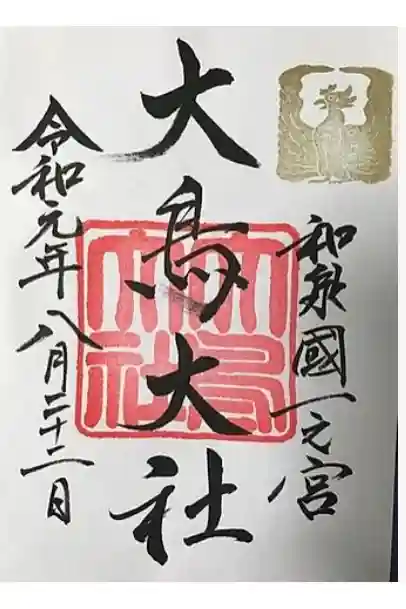 和泉國一之宮
大鳥大社
令和元年八月二十二日
大鳥
大社